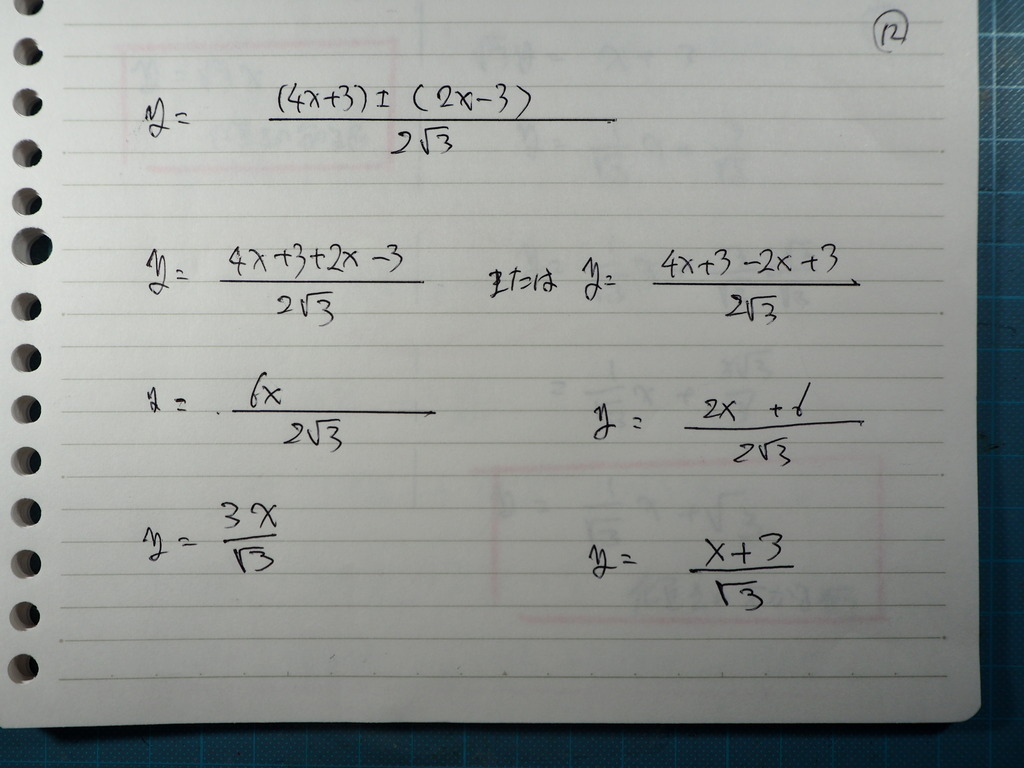 ⑫
y = (4x+3) ± (2x-3) / 2√3
y = 4x+3+2x-3 / 2√3 または y = 4x+3-2x+3 / 2√3
y = 6x / 2√3 y = 2x+6 / 2√3
y = 3x / √3 y = x+3 / √3